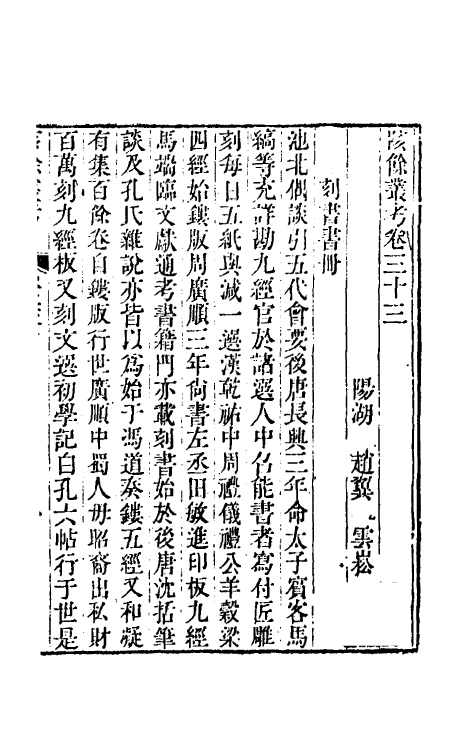 陔餘叢考卷三十三
陽湖 趙翼 雲崧
刻書書冊
池北偶談引五代會要後唐長興三年命太子賓客馬
縞等充詳勘九經官於諸選人中召能書者寫付匠雕
刻每日五紙與減一選漢乾祐中周禮儀禮公羊穀梁
四經始鏤版周廣順三年尚書左丞田敏進印板九經
馬端臨文獻通考書籍門亦載刻書始於後唐沈括筆
談及孔氏雜說亦皆以爲始于馮道奏鏤五經又和凝
有集百餘卷自鏤版行世廣順中蜀人毋昭裔出私財
百萬刻九經板又刻文選初學記白孔六帖行于世是